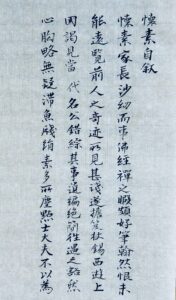 懷素自叙
懷素家長沙幼而事佛經禪之暇頗好筆翰然恨未
能遠覽前人之奇迹所見甚淺遂擔笈杖錫西遊上
國謁見當 代名公錯綜其事遺編絕簡往往遇之豁然
心胸略無疑滯魚牋絹素多所塵點士大夫不以為